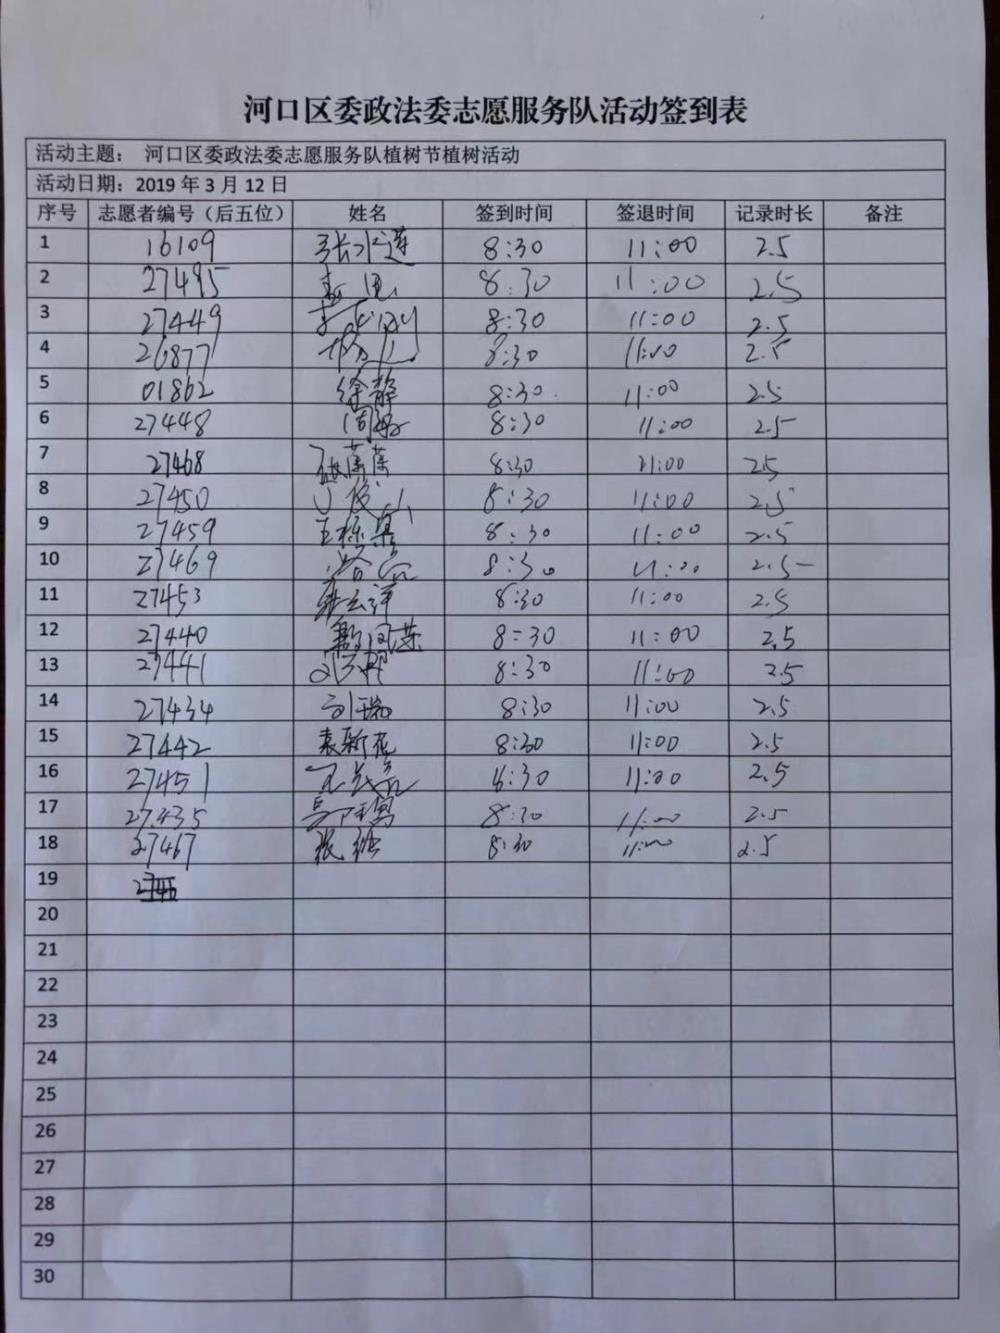 河口区委政法委志愿服务队活动签到表
活动主题： 河口区委政法委志愿服务队植树节植树活动
活动日期：2019 年 3 月 12 日
序号 志愿者编号（后五位） 姓名 签到时间 签退时间 记录时长 备注
1 16109 张水莲 8:30 11:00 2.5
2 27495 8:30 11:00 2.5
3 27449 8:30 11:00 2.5
4 26877 8:30 11:00 2.5
5 01862 徐静 8:30 11:00 2.5
6 27448 8:30 11:00 2.5
7 27468 8:30 11:00 2.5
8 27450 8:30 11:00 2.5
9 27459 8:30 11:00 2.5
10 27469 8:30 11:00 2.5
11 27453 8:30 11:00 2.5
12 27440 8:30 11:00 2.5
13 27441 8:30 11:00 2.5
14 27434 刘瑞 8:30 11:00 2.5
15 27442 袁新花 8:30 11:00 2.5
16 27451 8:30 11:00 2.5
17 27435 8:30 11:00 2.5
18 27467 8:30 11:00 2.5
19
20
21
22
23
24
25
26
27
28
29
30